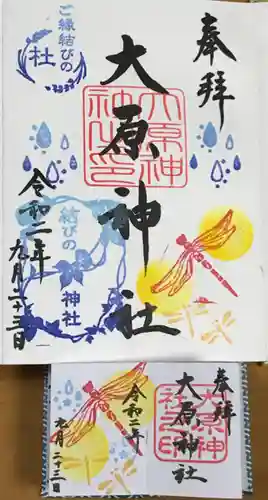 奉拝
大原神社
大原神社之印
ご縁結びの
社
令和二年
九月二十三日
結びの
神社
奉拝
大原神社
大原神社之印
令和二年
九月二十二日